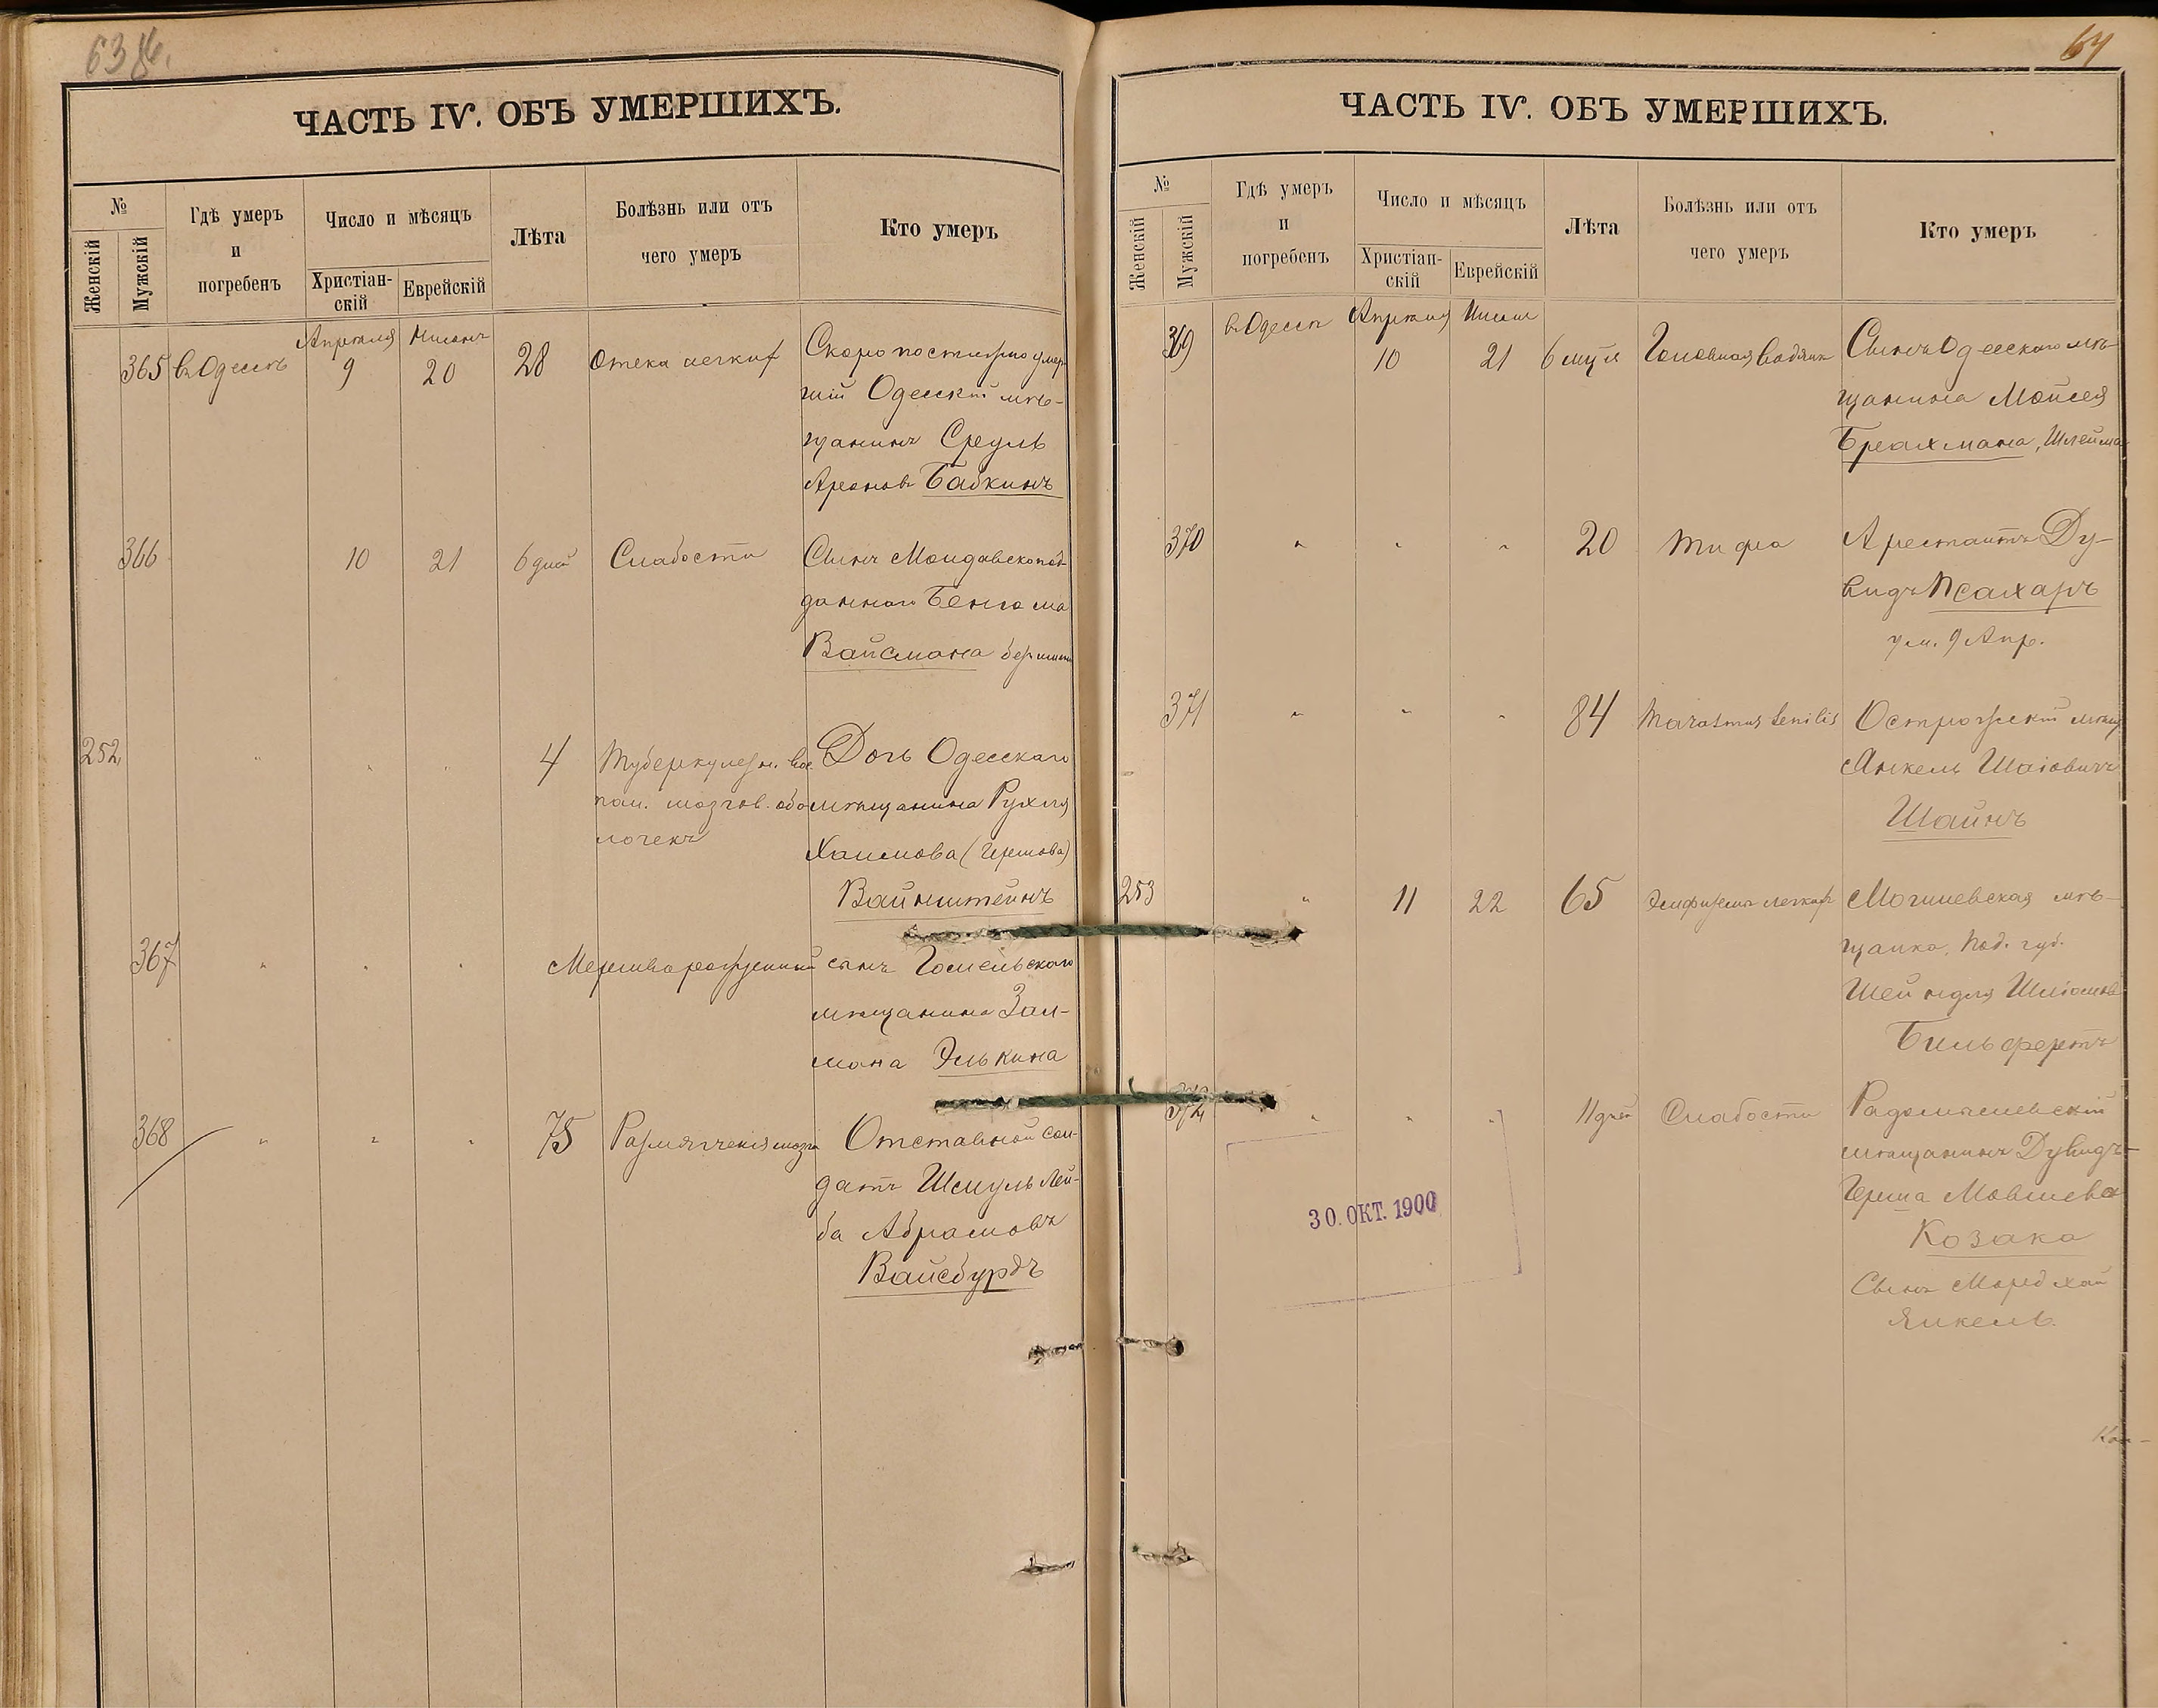 63 об.
ЧАСТЬ IV. ОБЪ УМЕРШИХЪ.
№
Женскій
Мужскій
Гдѣ умеръ
и
погребенъ
Число и мѣсяцъ
Христіан-
скій
Еврейскій
Лѣта
Болѣзнь или отъ
чего умеръ
Кто умеръ
365 въ Одессѣ Апрѣля 9 Нисанъ 20 28 Отека легкихъ Скоропостижно умер-
шій Одесскій мѣ-
щанинъ Сруль
Ароновъ Бабкинъ
366 10 21 6 дней Слабости Сынъ Молдавскопод-
даннаго Бенгома
Вайсмана
252 " " " 4 Туберкулезн. вос. Дочь Одесскаго
пал. мозгов. обо мѣщанина Рухля
лочекъ Хаимова (Гершова)
Вайнштейнъ
367 " " " Мертворожденный сынъ Гомельскаго
мѣщанина Зал-
мана Элькина
368 " " " 75 Размягченія мозга Отставной сол-
датъ Шмуль Лей-
ба Абрамовъ
Вайсбурдъ
64
ЧАСТЬ IV. ОБЪ УМЕРШИХЪ.
№
Женскій
Мужскій
Гдѣ умеръ
и
погребенъ
Число и мѣсяцъ
Христіан-
скій
Еврейскій
Лѣта
Болѣзнь или отъ
чего умеръ
Кто умеръ
369 въ Одессѣ Апрѣля 10 Нисан 21 6 мѣс Головная водянк Сынъ Одесскаго мѣ-
щанина Мойсея
Брахмана, Шлейма
370 " " " 20 Тифа Арестантъ Ду-
видъ Псахаръ
ум. 9 Апр.
371 " " " 84 Marasmus senilis Острожскій мѣщ
Анкель Шаіовичъ
Шаинъ
253 " 11 22 65 Эмфиземы легкихъ Могилевская мѣ-
щанка, Под. губ.
Шейндля Шліомов
Бильфертъ
372 " " " 11 дней Слабости Радомысльскій
мѣщанинъ Дувидъ-
Герша Мовшева
Козака
Сынъ Мордхай
Янкель.
30. ОКТ. 1900